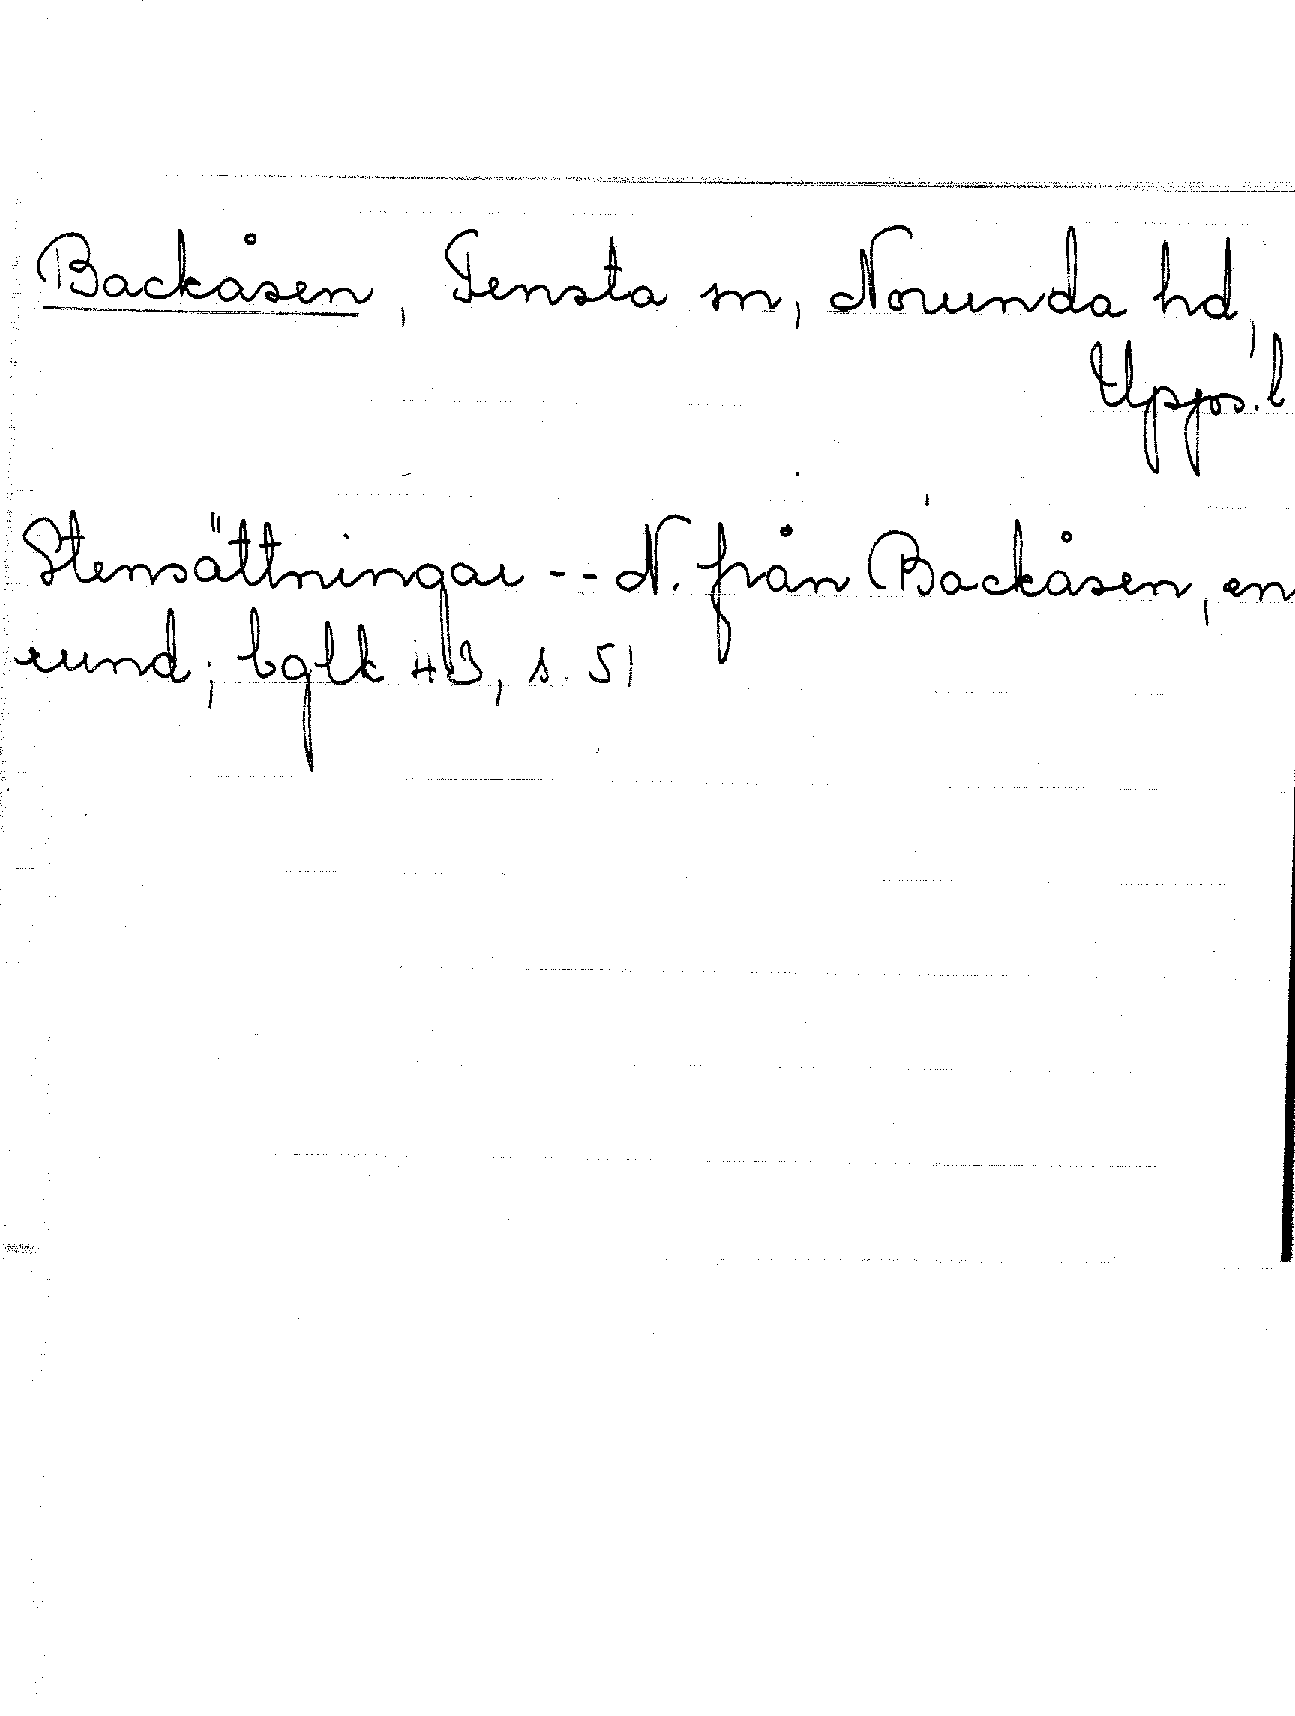 Backåsen, Tensta sn, Norunda hd,
Upps. l
Stensättningar -- N. från Backåsen, en
rund; bglk 43, s. 51